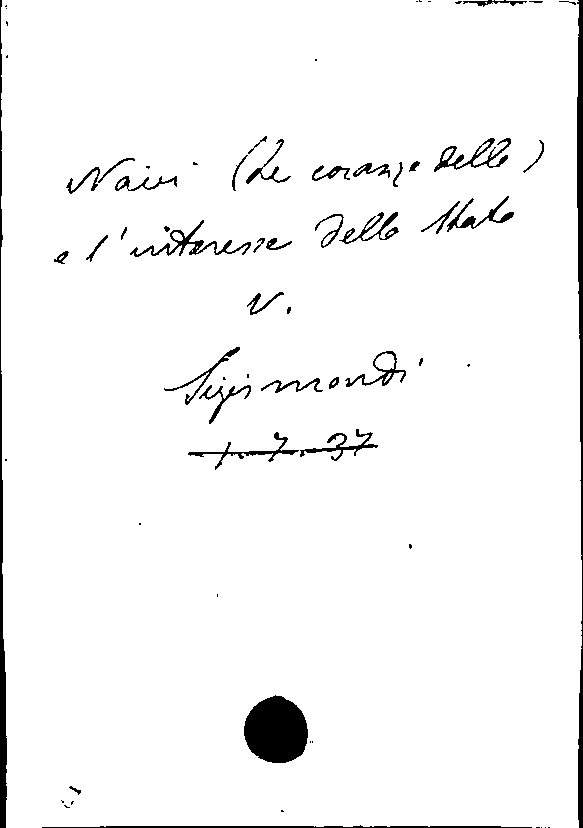 Navi (Le corazze delle)
e l'interesse dello Stato
V.
Sigismondi
1.7.37